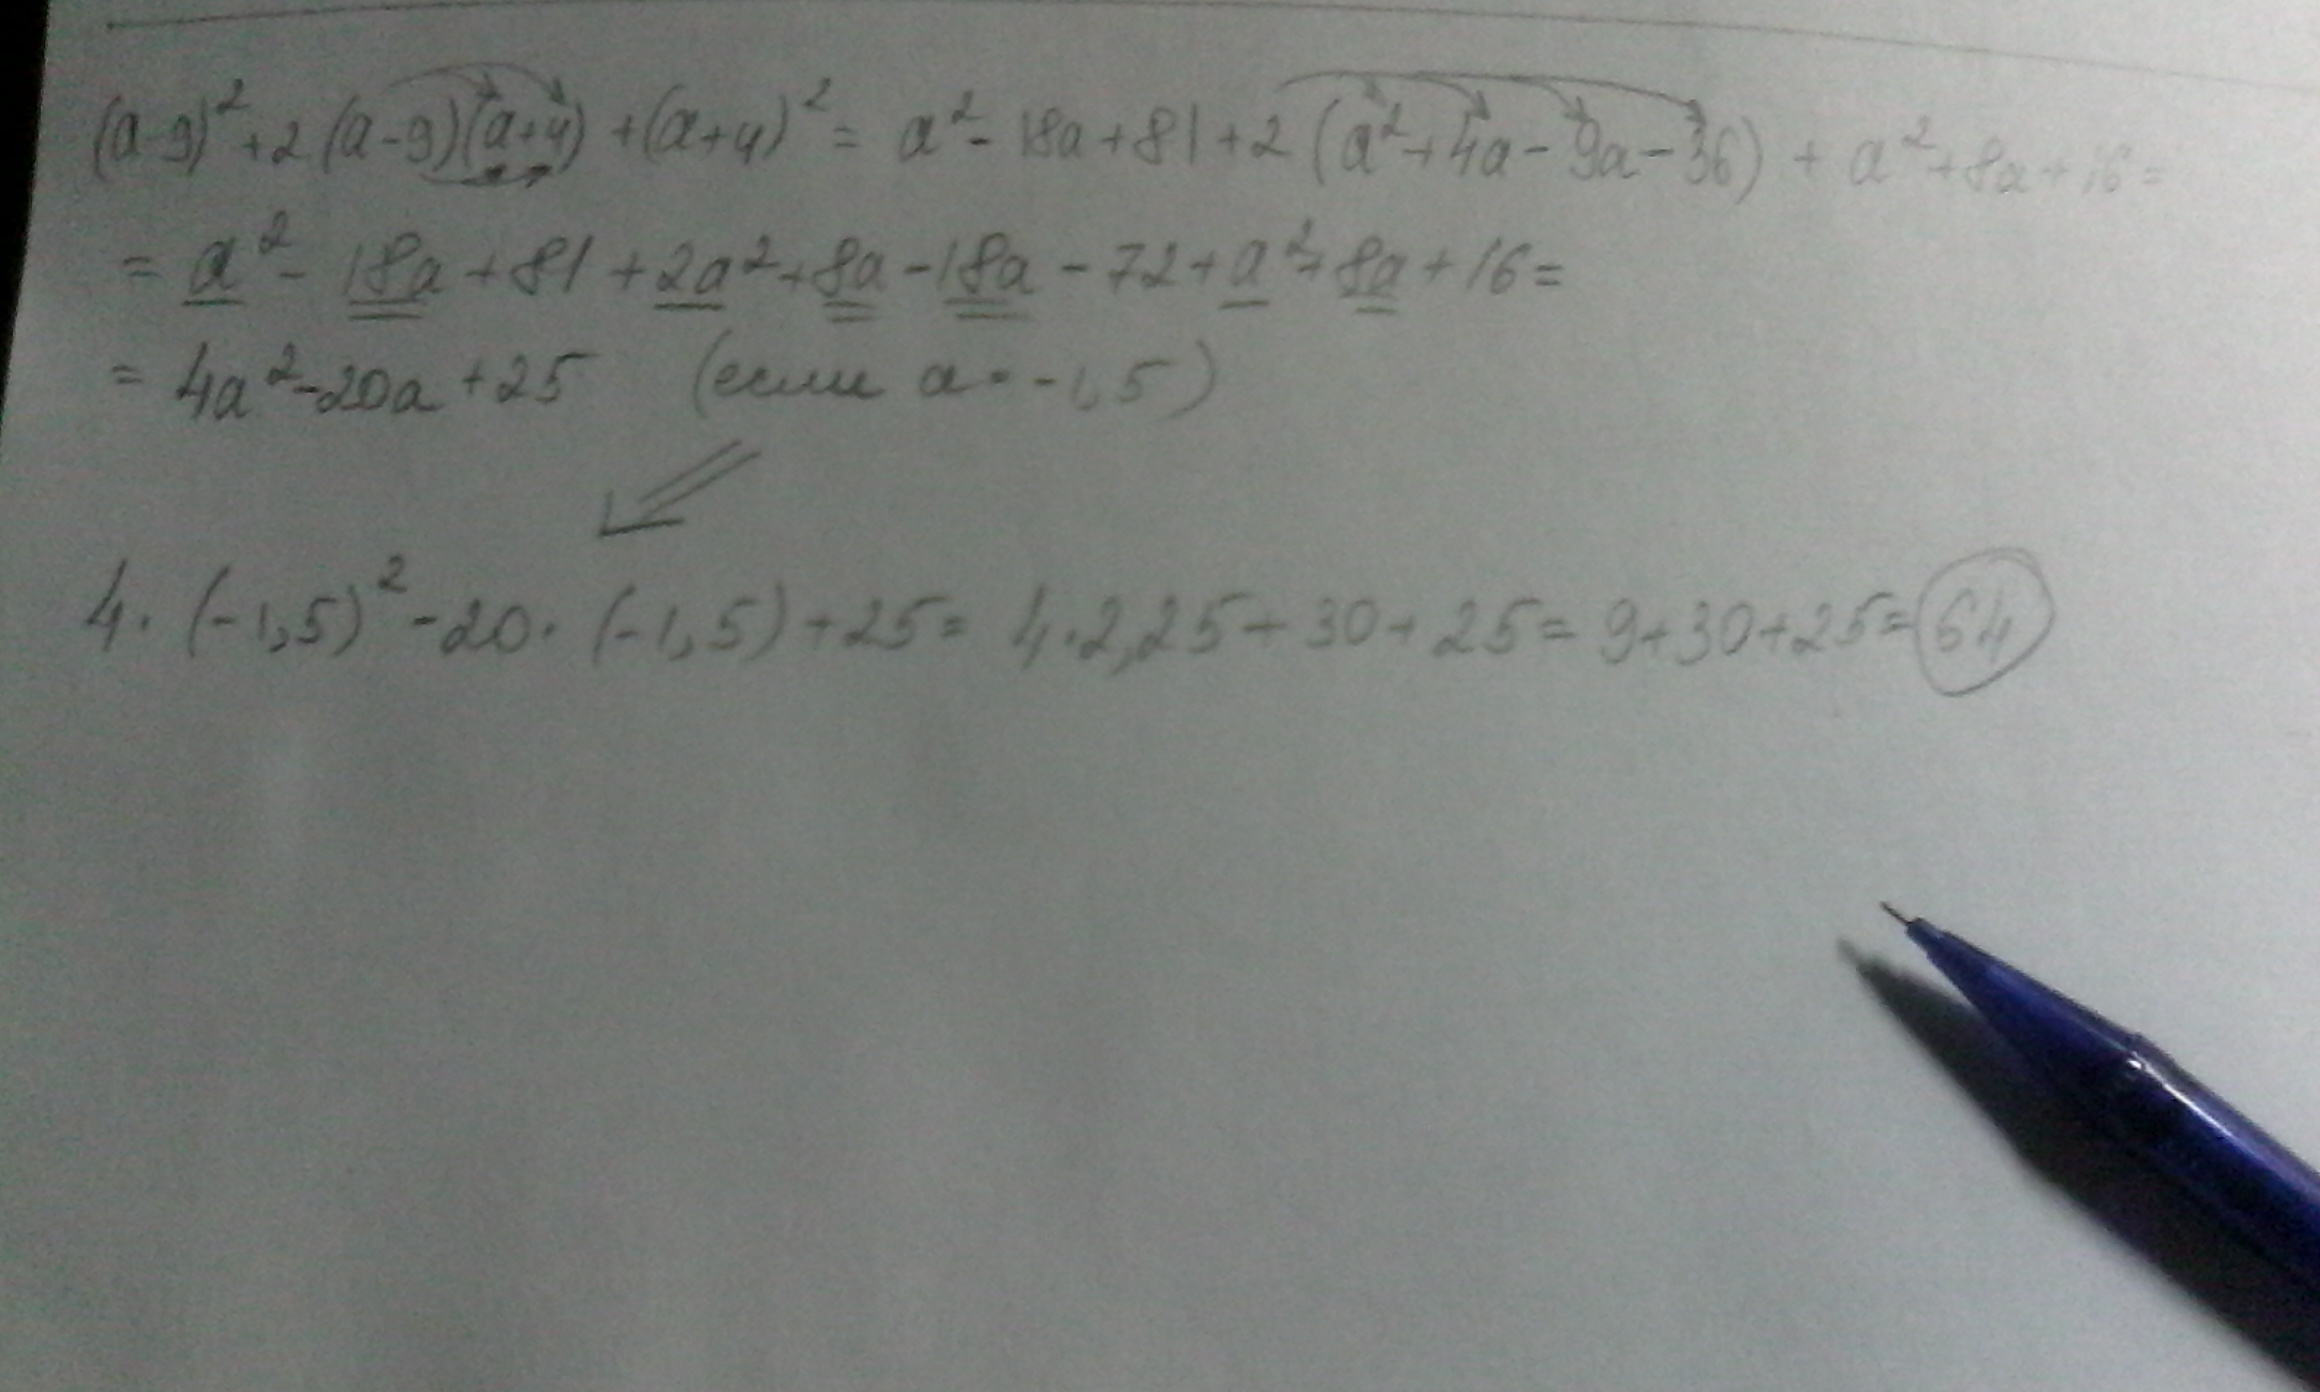 (a-9)²+2(a-9)(a+4)+(a+4)²= a²-18a+81+2(a²+4a-9a-36)+a²+8a+16=
= a²-18a+81+2a²+8a-18a-72+a²+8a+16=
= 4a²-20a+25 (если a=-1,5)
4·(-1,5)²-20·(-1,5)+25= 4·2,25+30+25=9+30+25=64